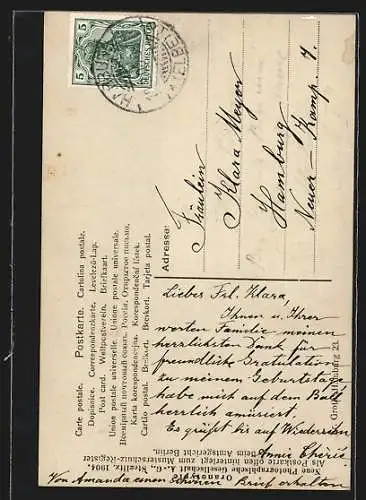 Postkarte.
Carte postale. Cartolina postale.
Dopisnice. Correspondenzkarte. Levelező-Lap.
Post card. Weltpostverein. Briefkaart.
Union postale universelle. Unione postale universale.
Karta korespondencyjna. Korespondenční lístek.
Cartão postal. Brefkort. Brevkort. Tarjeta postal.
Adresse:
Fräulein
Klara Meyer
Hamburg
Neuer-Kamp. 7.
5 DEUTSCHES REICH 5
HAMBURG
Lieber Frl. Klara,
Ihnen u. Ihrer
werten Familie meinen
herrlichsten Dank für
freundliche Gratulation
zu meinem Geburtstage
habe mich auf dem Ball
herrlich amüsiert.
Es grüßt bis auf Wiedersehn
Annie
Von Amanda einen schönen Brief erhalten
Neue Photographische Gesellschaft A.-G. Steglitz. 1904.
Als Postkarte offen hinterlegt zum Musterschutz-Register
beim Amtsgericht Berlin.